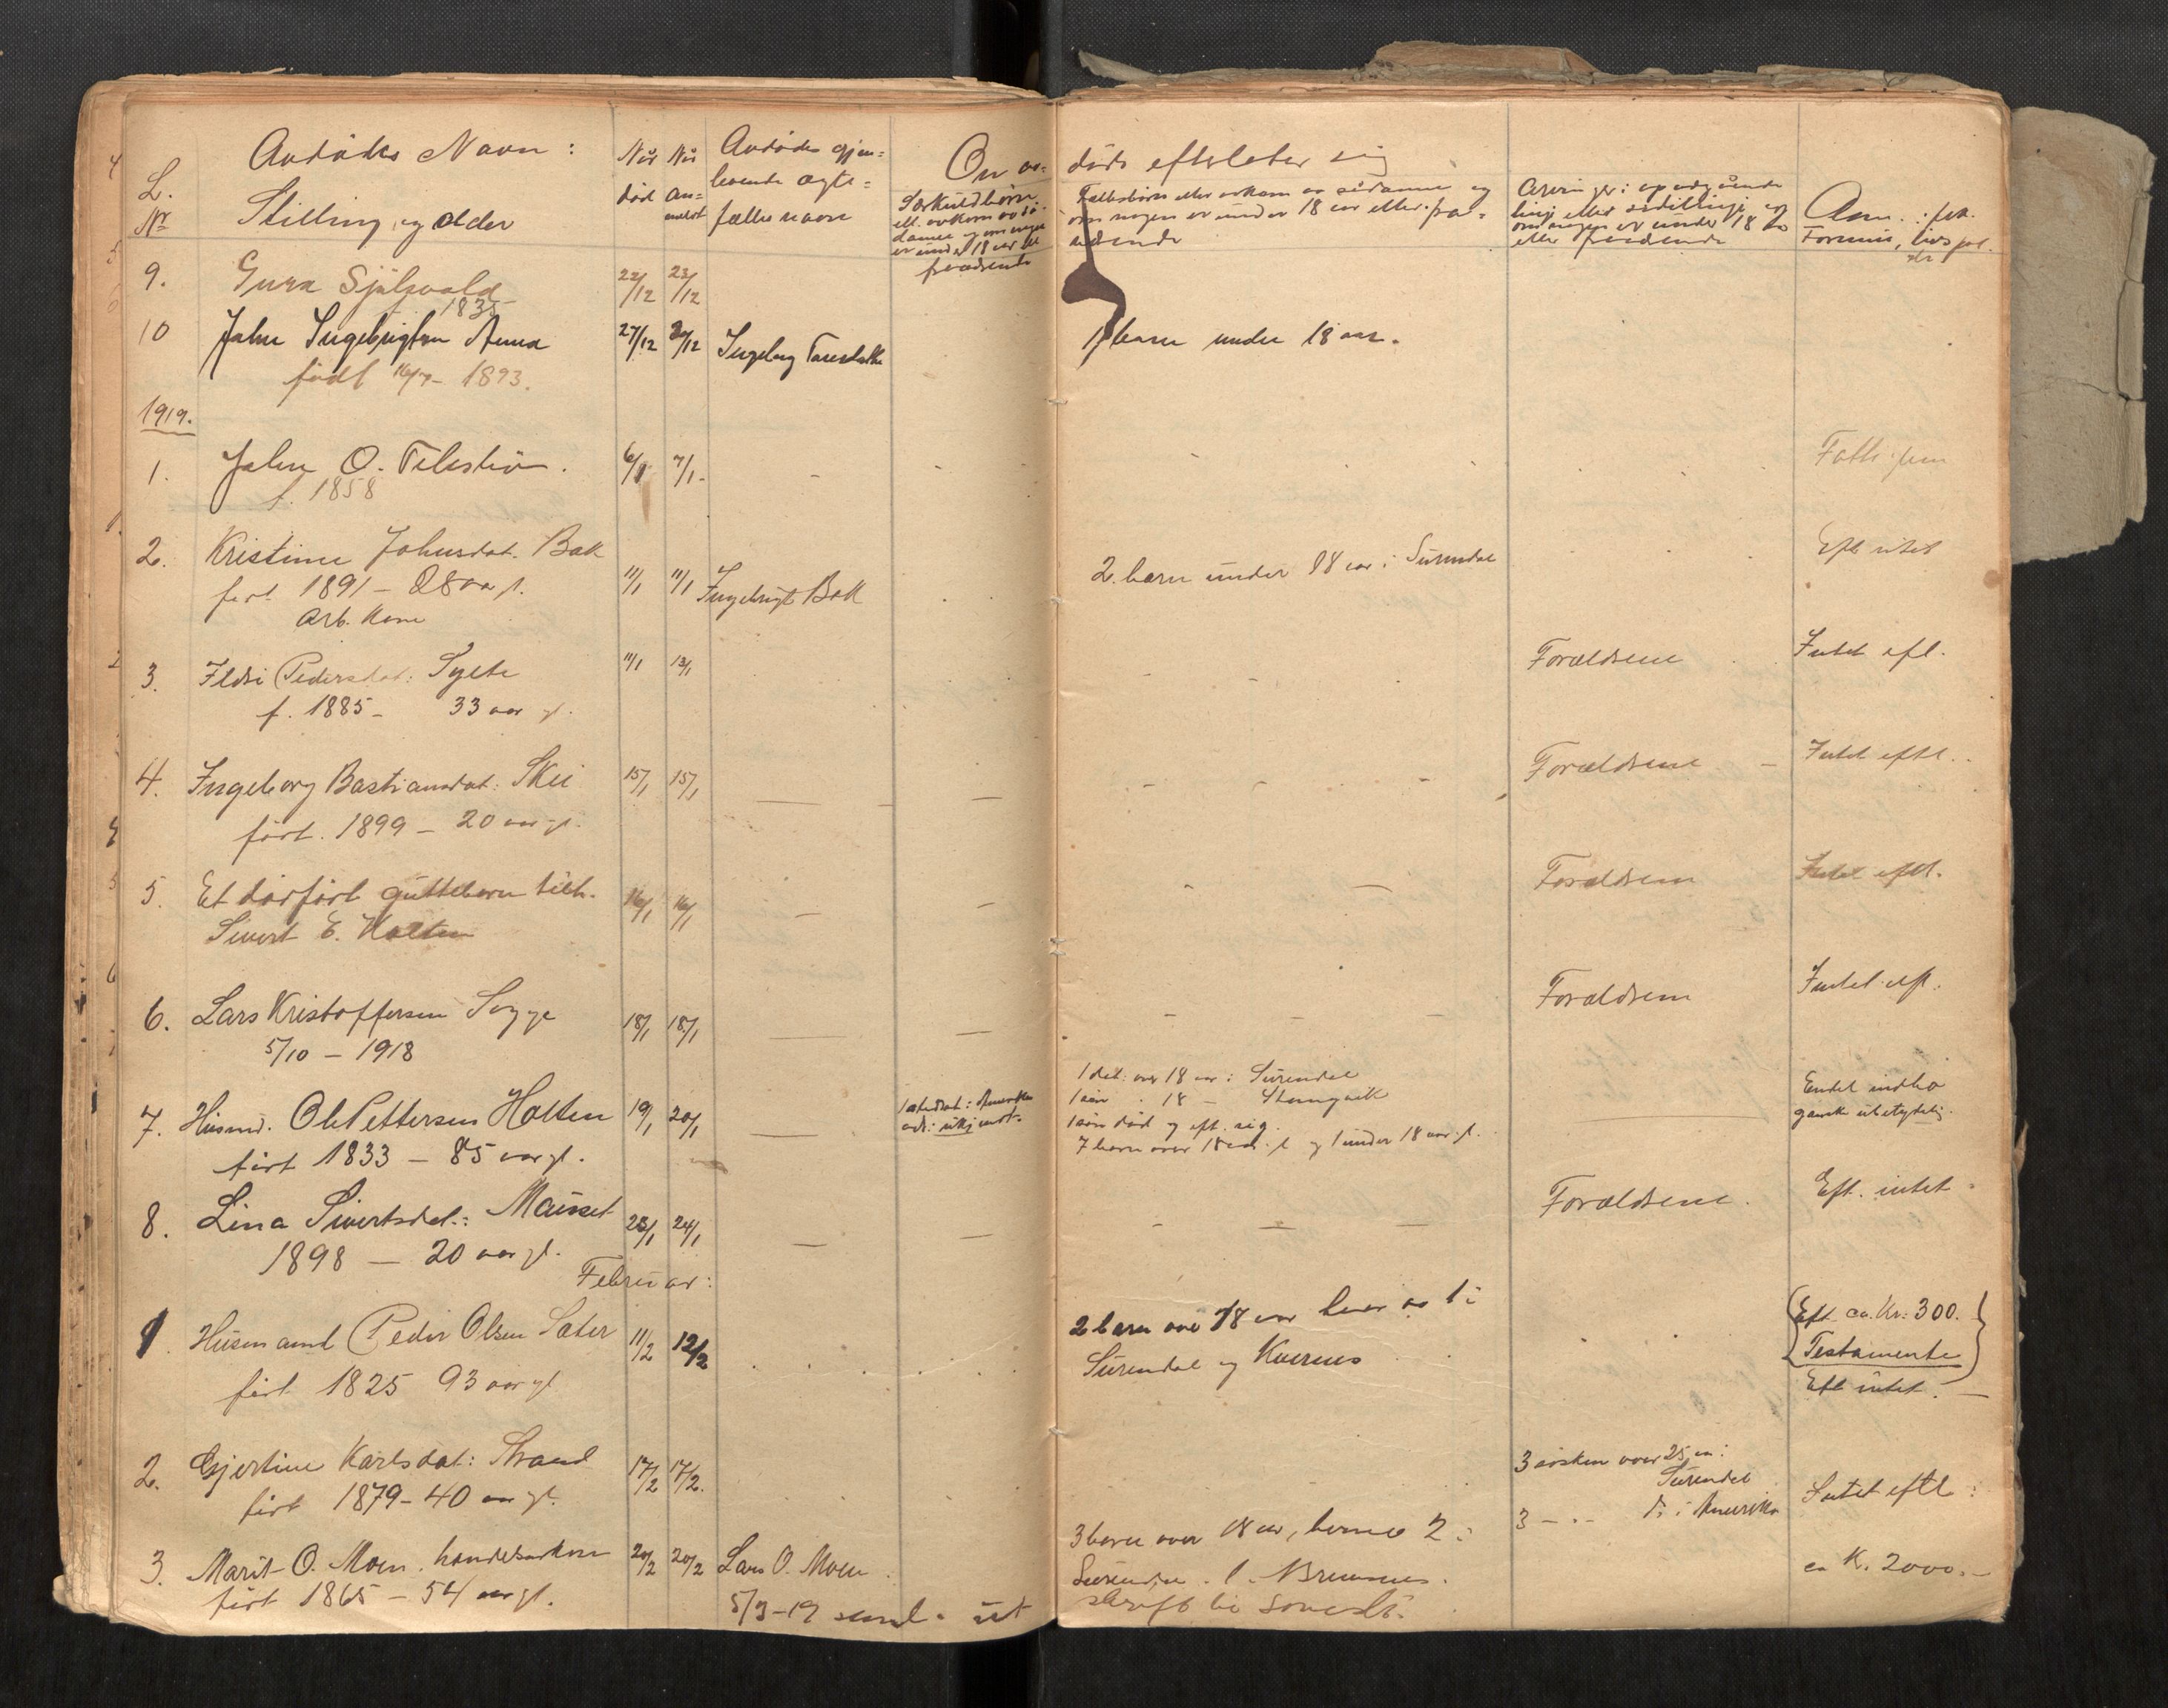 L. Nr
Avdødes Navn:
Stilling og alder
Når død
Når anmeldt
Avdødes gjen=
levende ægte=
fælles navn
Om av=
døde efterlater sig
Særkuldbørn
ell. avkom av så=
danne og om nogen
er under 18 aar ell.
fraværende
Fællesbørn eller avkom av sådanne og
om nogen er under 18 aar eller fra=
værende
Arvinger i opadgående
linje eller sidelinje og
om nogen er under 18 år
eller fraværende
Anm.:
Formue,
9. Gura Sjølsvold 22/12 23/12
1835
10 John Ingebrigtsen Ånna 27/12 30/12 Ingeborg 1 barn under 18 aar.
født 16/7 - 1893.
1919.
1. John O. Telstø. 6/1 7/1 - Fattiglem
f. 1858
2. Kristine Johnsdat. Bak 11/1 11/1 Ingebrigt Bak 2 barn under 18 aar i Surendal Eft. intet
født 1891 - 28 aar gl.
Arb. kone
3. Ildri Pedersdat: Sylte 11/1 13/1 Forældrene Intet eft.
f. 1885 - 33 aar gl.
4. Ingeborg Bastiansdat: Skei 15/1 15/1 - - Forældrene - Intet eftl.
født. 1899 - 20 aar gl.
5. Et dødfødt guttebarn tilh. 16/1 16/1 - - Forældrene Intet eftl.
Sivert E. Holten
6. Lars Kristoffersen Sogge 18/1 18/1 - - Forældrene Intet eft.
5/10 - 1918
7. Husmd. Ole Pettersen Holten 19/1 20/1 -
født 1833 - 85 aar gl.
1 datter: Amerika
adr: ukjendt.
1 dat: over 18 aar i Surendal
1 søn " 18 - Stangvik
1 søn død og eft. sig.
7 barn over 18 aar gl. og 1 under 18 aar gl.
Enkel indbo
ganske ubetydelig.
8. Lina Sivertsdat: Mauset 23/1 24/1 - - Forældrene. Eft. intet
1898 - 20 aar gl.
Februar:
1. Husmand Peder Olsen Sæter 11/2 12/2
født 1825 93 aar gl
2 barn over 18 aar hver av 1 i
Surendal og Kvernes
Eft ca. Kr: 300.
Testamente
Eft intet.
2. Gjertine Karlsdat: Strand 17/2 17/2.
født 1879 - 40 aar gl.
3 søsken over 25 aar i
Surendal
3 - " - i Amerika
Intet eftl:
3. Marit O. Moen. 20/2 20/2 Lars O. Moen
født 1865 - 54 aar gl.
3 barn over 18 aar, herav 2 i
Surendal. 1. Bremsnes.
ca K. 2000.-
5/3-19 sendt ut
skrift til Sorensk.